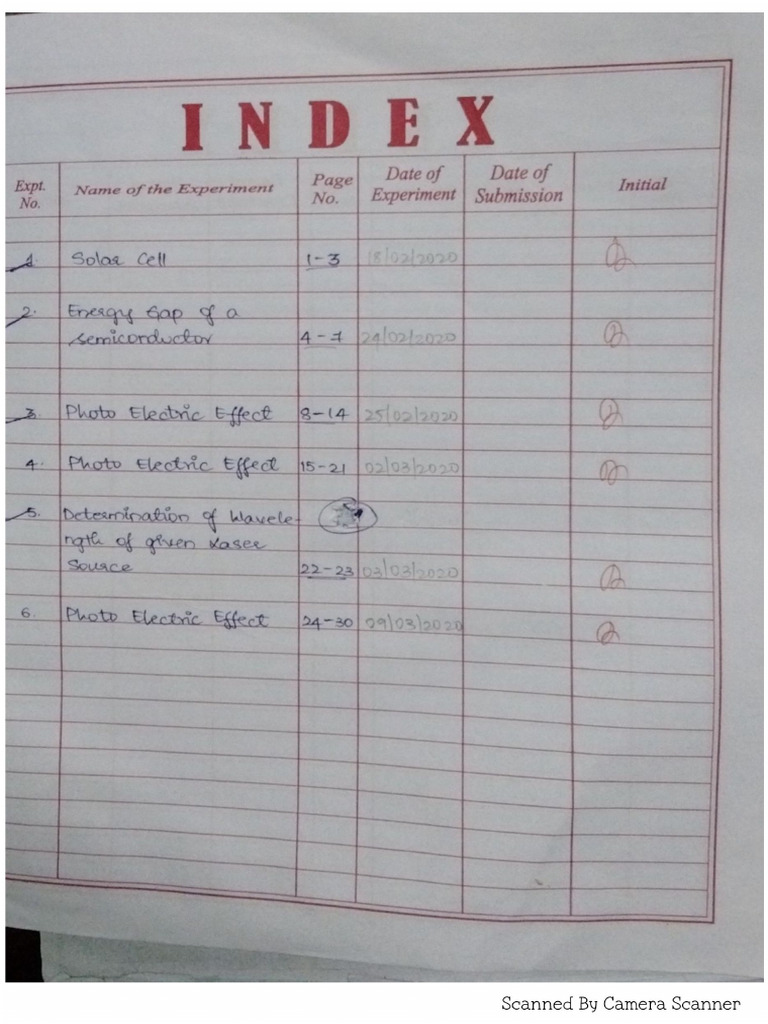 INDEX
Expt. No. Name of the Experiment Page No. Date of Experiment Date of Submission Initial
1. Solar Cell 1-3 18/02/2020
2. Energy Gap of a
semiconductor 4-7 24/02/2020
3. Photo Electric Effect 8-14 25/02/2020
4. Photo Electric Effect 15-21 02/03/2020
5. Determination of Wavele-
ngth of given Laser
Source 22-23 03/03/2020
6. Photo Electric Effect 24-30 09/03/2020
Scanned By Camera Scanner